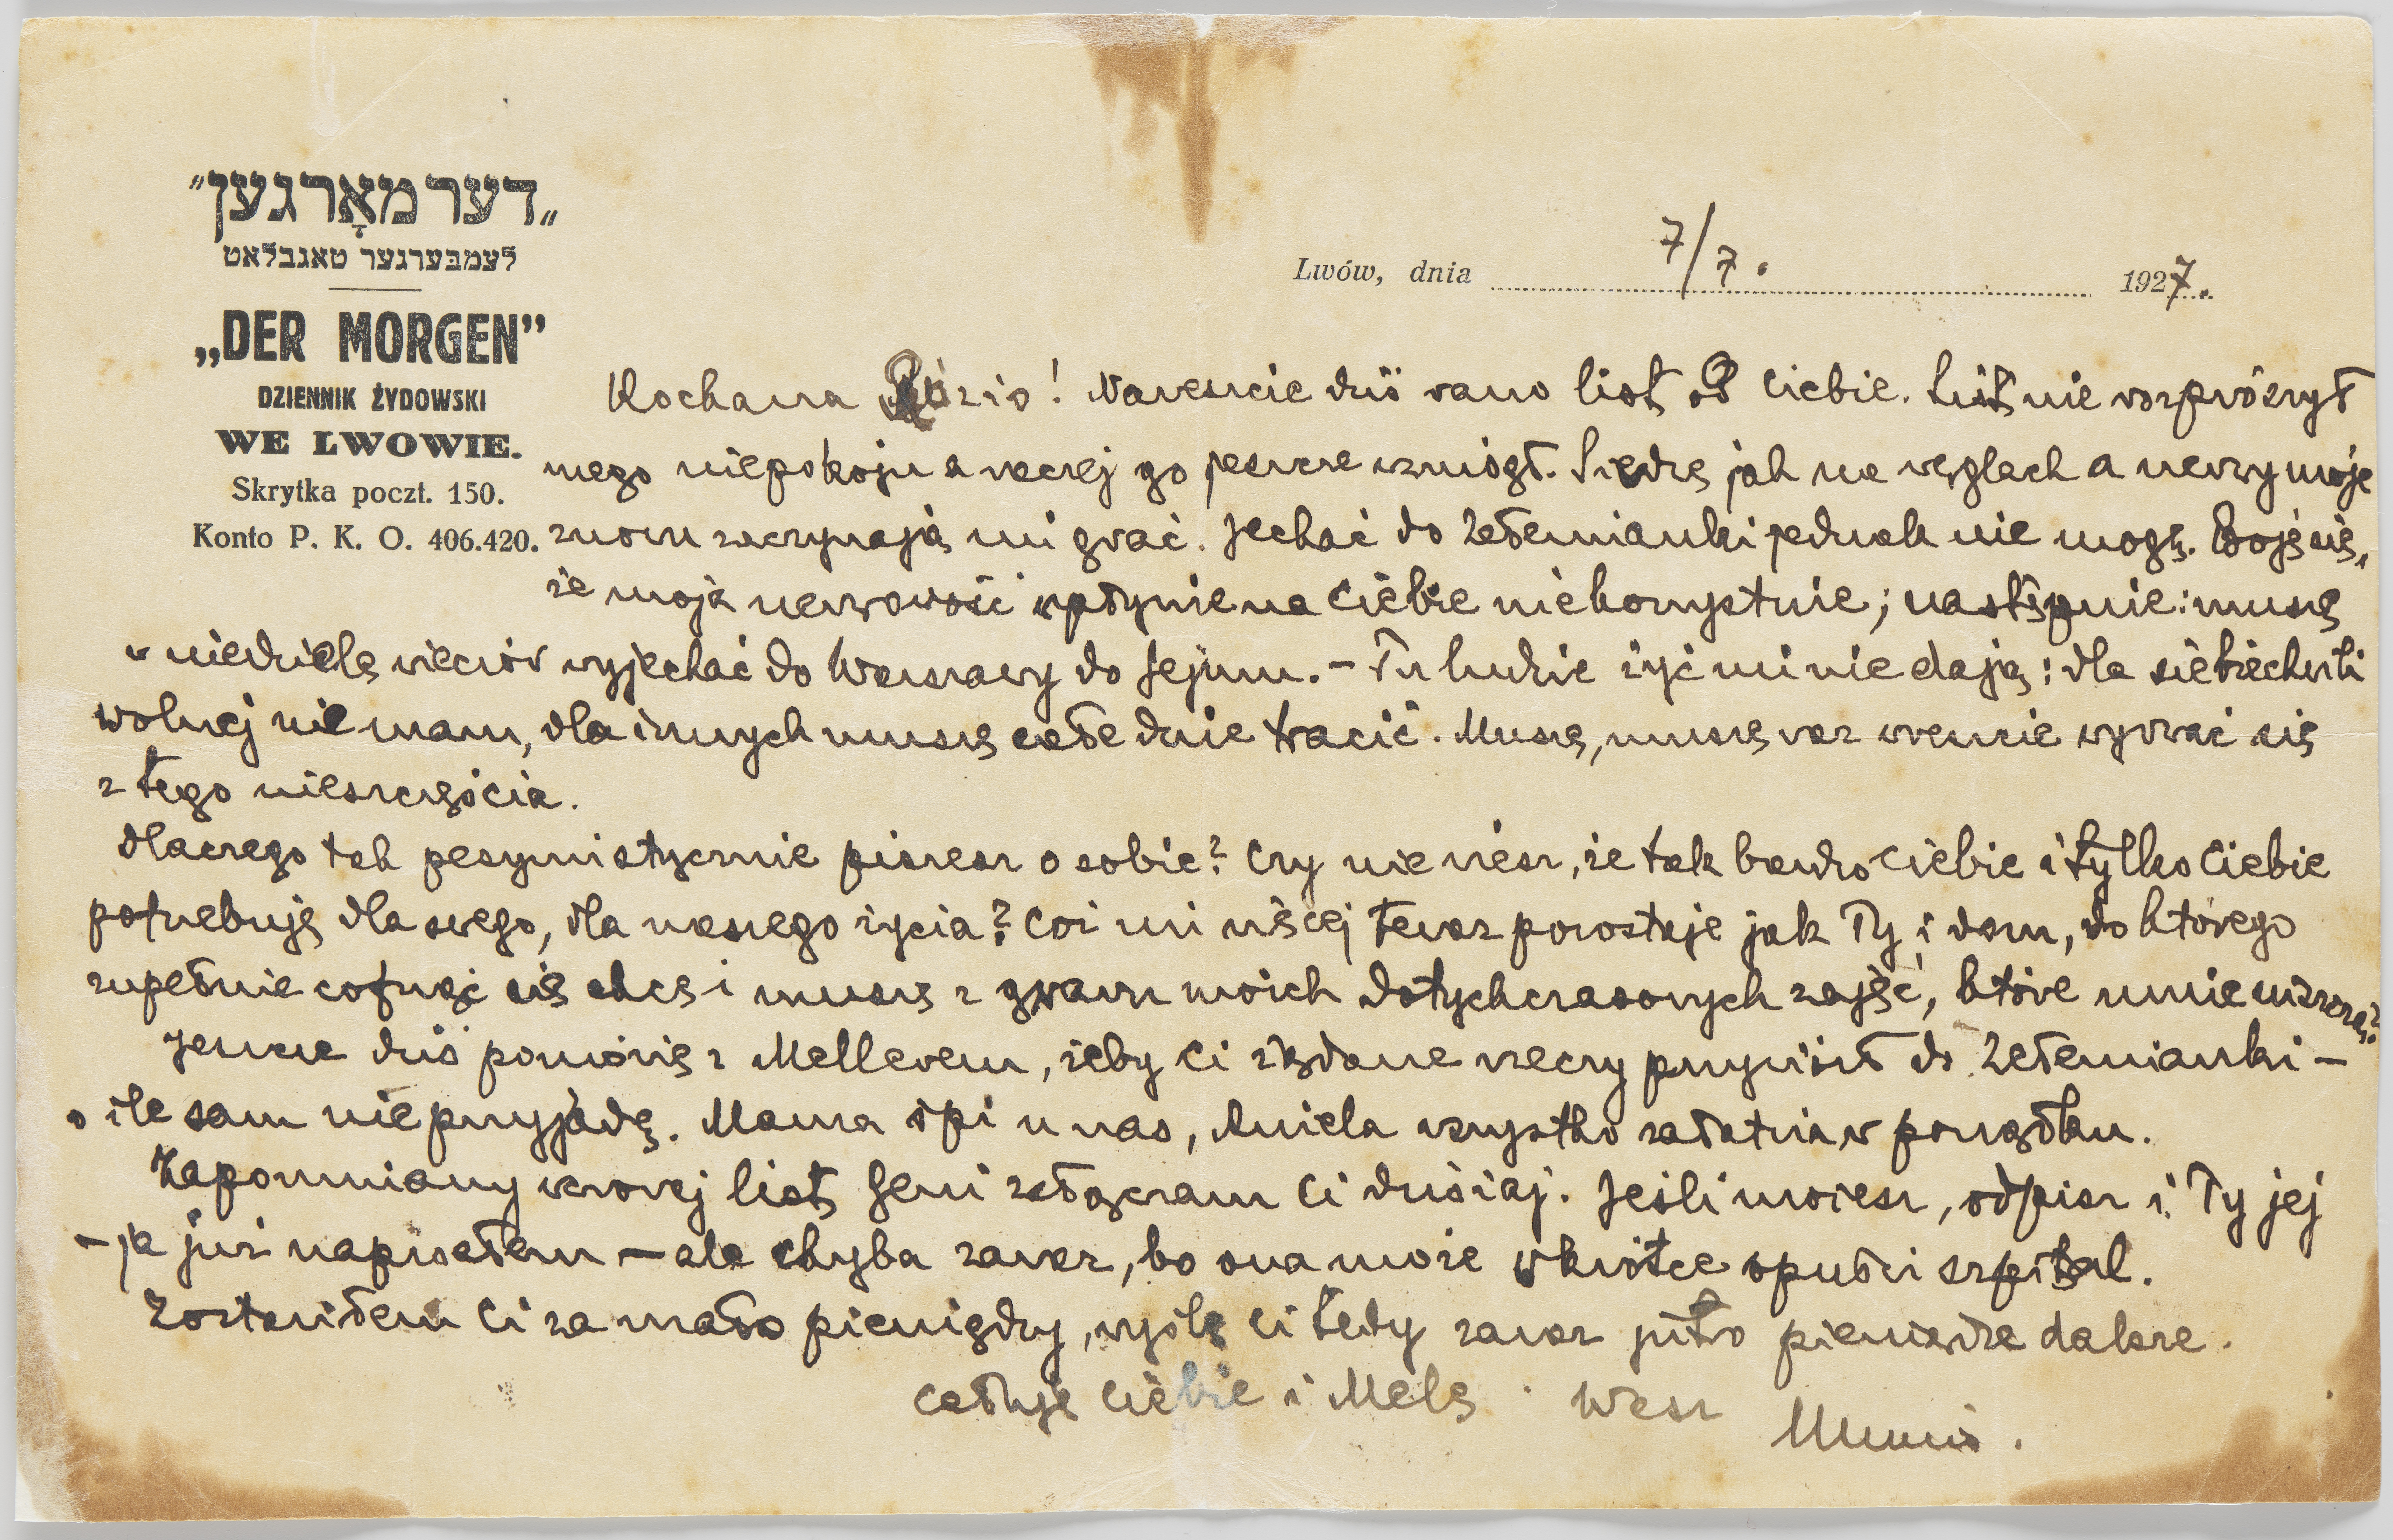 „דער מאָרגען"
לעמבערגער טאגבלאט
„DER MORGEN”
DZIENNIK ŻYDOWSKI
WE LWOWIE.
Skrytka poczt. 150.
Konto P. K. O. 406.420.
Lwów, dnia 7/7. 1927.
Kochana Rózio! Nareszcie dziś rano list od Ciebie. List nie rozprószył
mego niepokoju a raczej go jeszcze wzmógł. Siedzę jak na węglach a nerwy moje
znowu zaczynają mi grać. Jechać do Zełemianki jednak nie mogę. Boję się,
że moja nerwowość wpłynie na Ciebie niekorzystnie; następnie: muszę
w niedzielę wieczór wyjechać do Warszawy do Sejmu. – Tu ludzie żyć mi nie dają: dla siebie chwili
wolnej nie mam, dla innych muszę całe dnie tracić. Muszę, muszę raz wreszcie wyrwać się
z tego nieszczęścia.
Dlaczego tak pesymistycznie piszesz o sobie? Czy nie wiesz, że tak bardzo Ciebie i tylko Ciebie
potrzebuję dla swego, dla naszego życia? Cóż mi więcej teraz pozostaje jak Ty i dom, do którego
zupełnie cofnąć się chcę i muszę z gwaru moich dotychczasowych zajęć, które mnie niszczą?
Jeszcze dziś pomówię z Mellerem, żeby Ci żądane rzeczy przywiózł do Zełemianki –
o ile sam nie przyjadę. Mama śpi u nas, Aniela wszystko załatwia w porządku.
Zapomniany wczoraj list Geni załączam Ci dzisiaj. Jeśli możesz, odpisz i Ty jej
– ja już napisałem – ale chyba zaraz, bo ona może wkrótce opuści szpital.
Zostawiłem Ci za mało pieniędzy, wyślę Ci tedy zaraz jutro pieniądze dalsze.
Całuję Ciebie i Melę. Wasz
Munio.